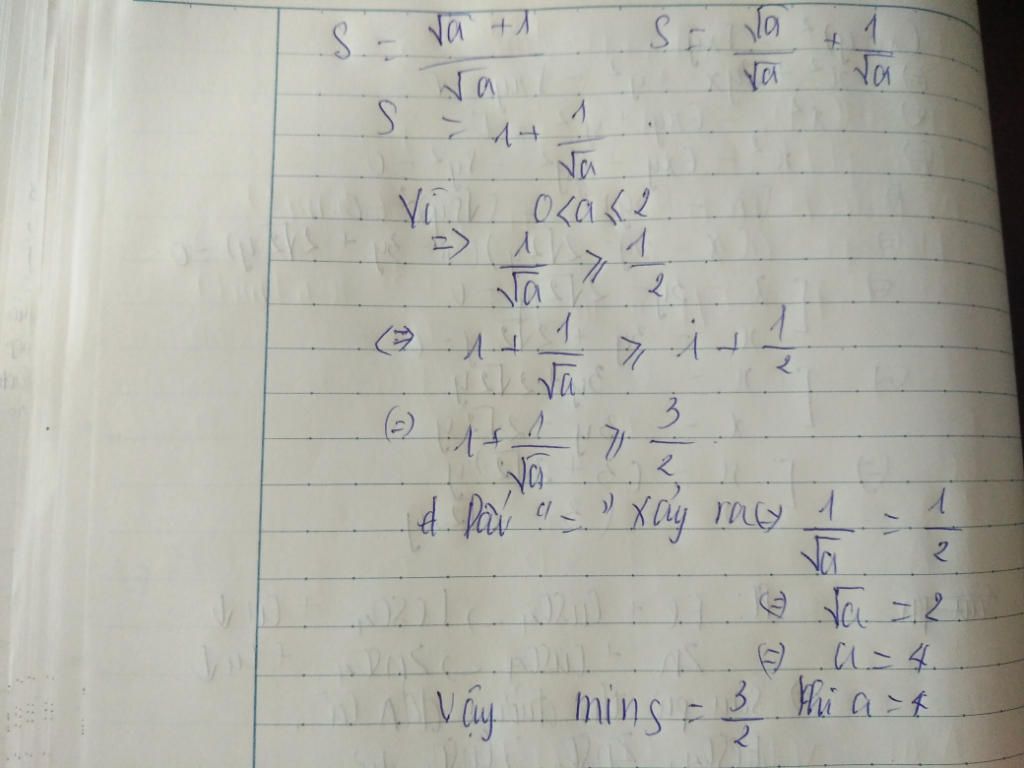 S = (√a + 1)/√a   S = √a/√a + 1/√a
S = 1 + 1/√a
Vì 0 < a ≤ 2
=> 1/√a ≥ 1/2
<=> 1 + 1/√a ≥ 1 + 1/2
(=) 1 + 1/√a ≥ 3/2
Dấu "=" xảy ra (=) 1/√a = 1/2
(=) √a = 2
(=) a = 4
Vậy min S = 3/2 khi a = 4